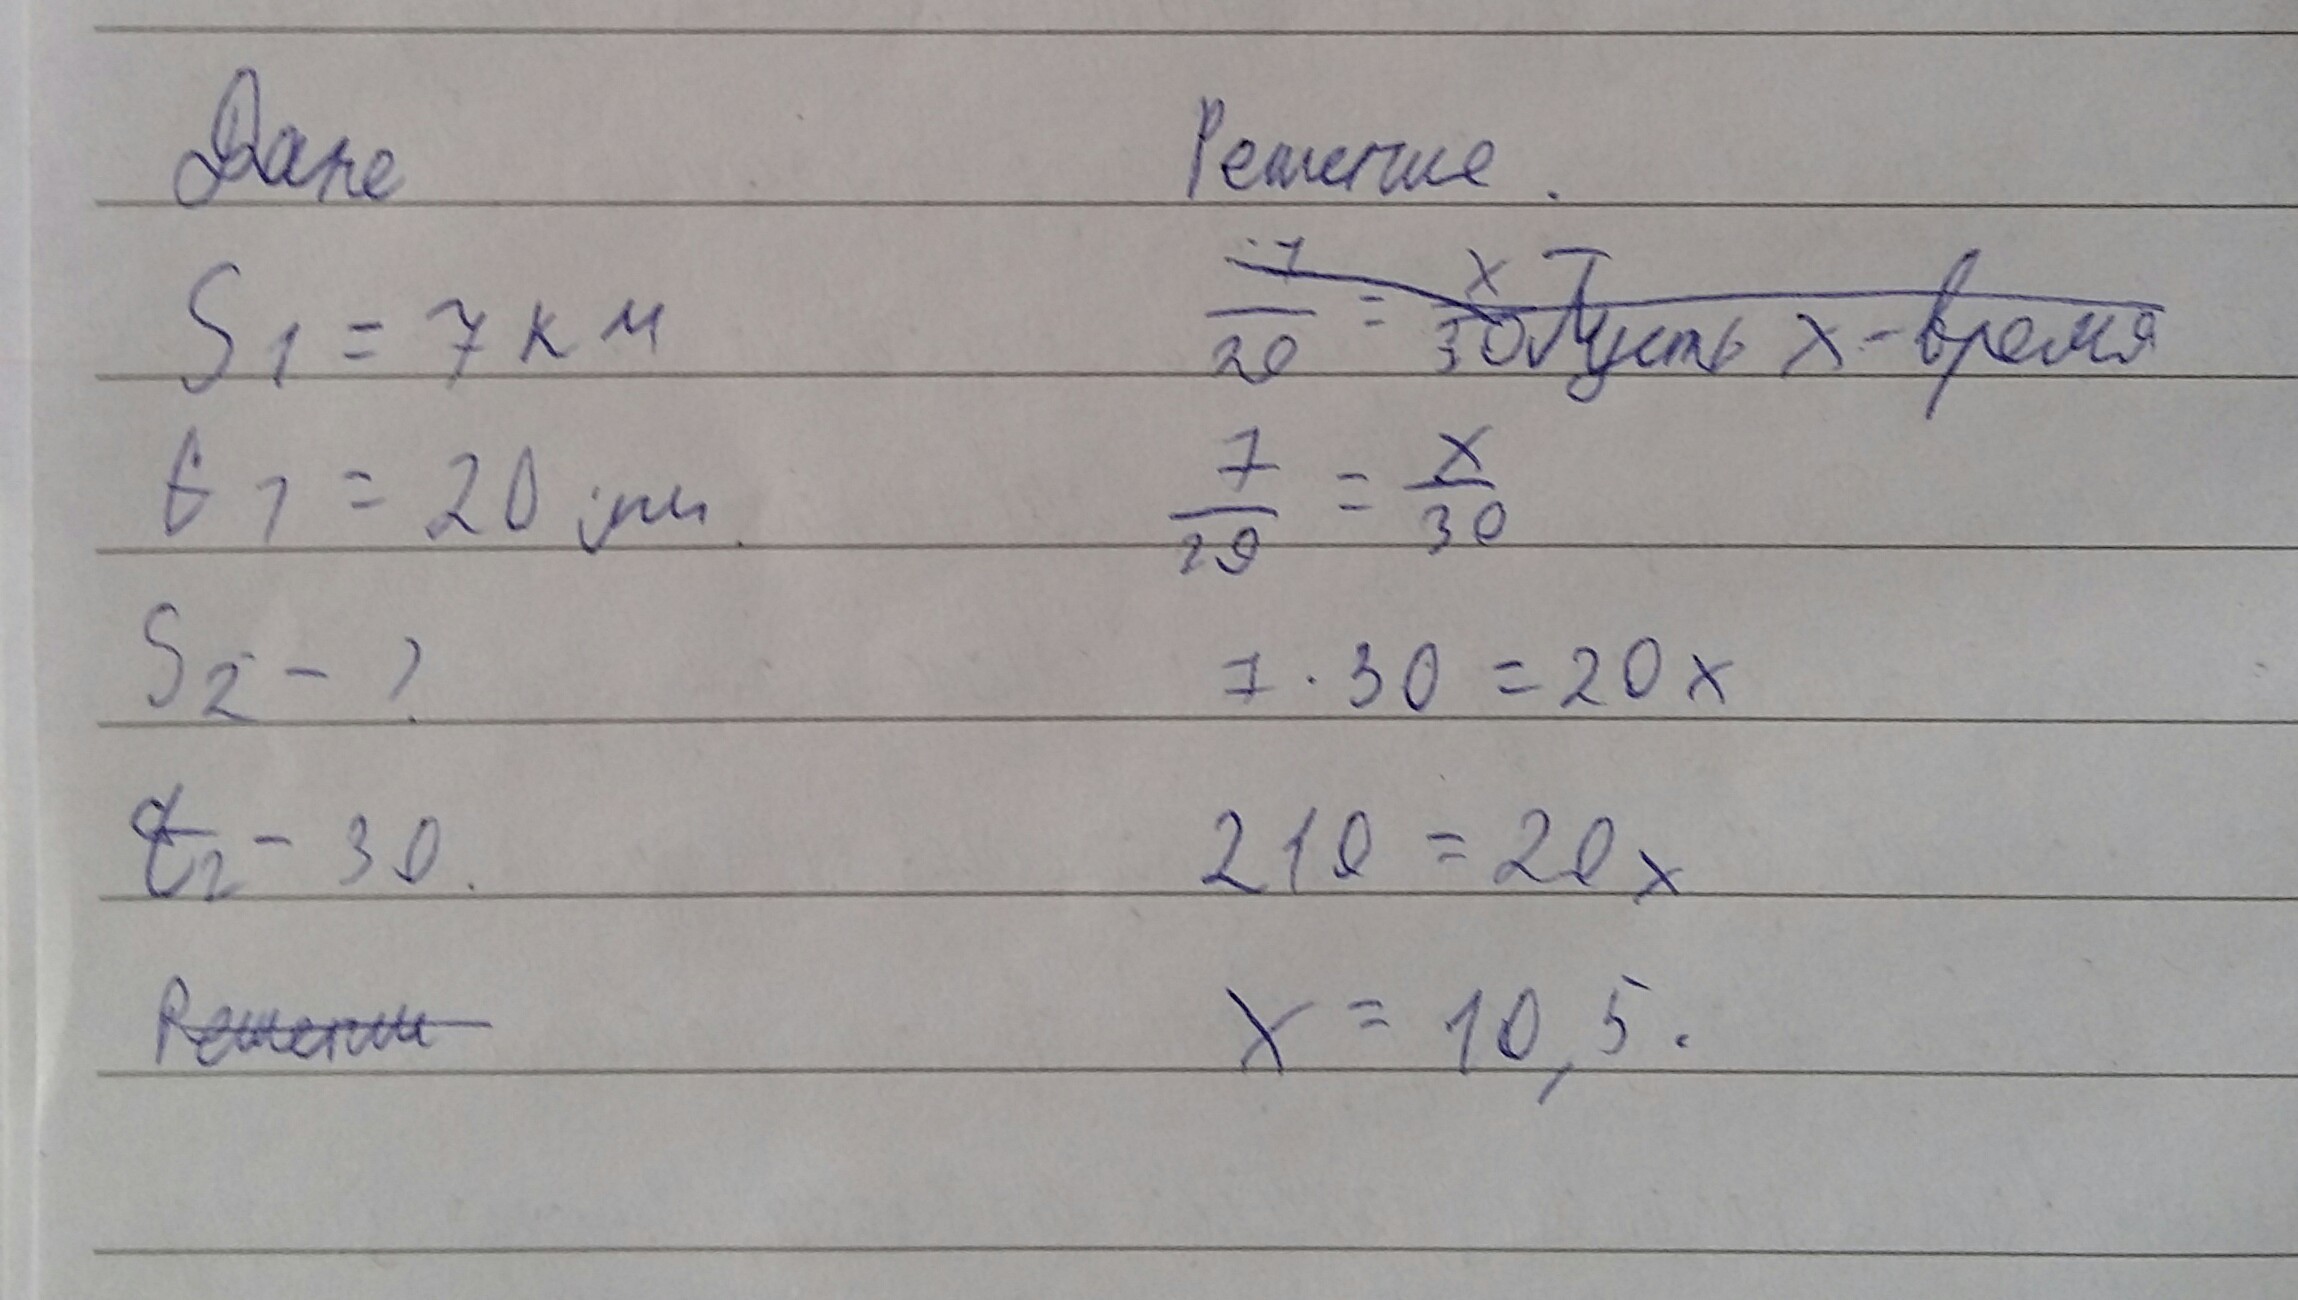 Дане
S1 = 7 км
t1 = 20 мин.
S2 - ?
t2 - 30.
Решение.
7/20 = x/30 Пусть x - время
7/20 = x/30
7 · 30 = 20x
210 = 20x
x = 10,5.